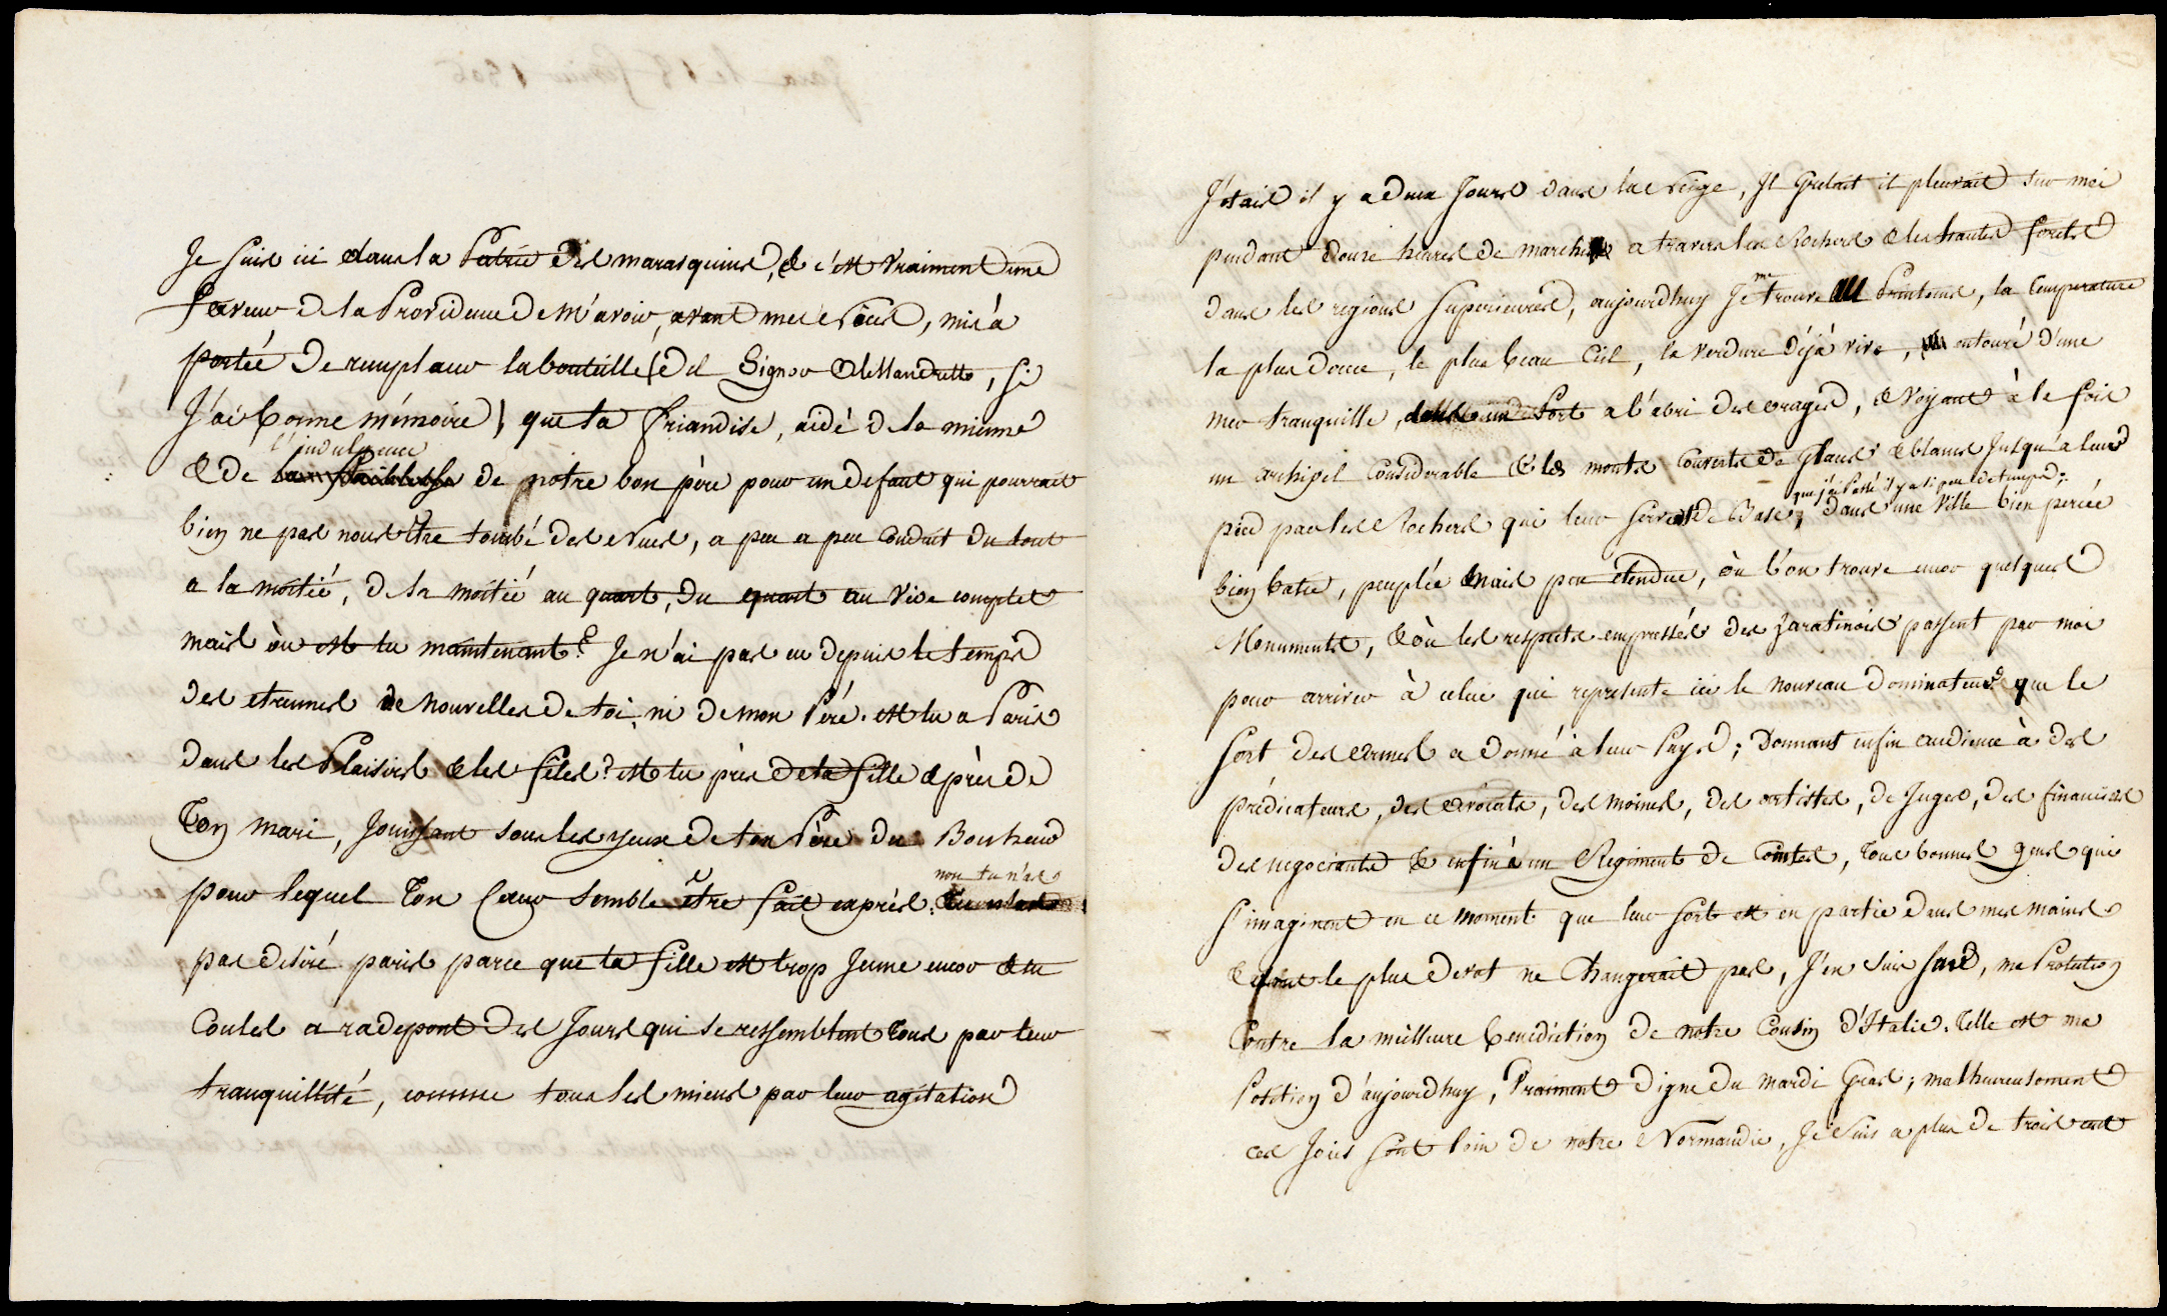 Je suis ici dans la Patrie des marasquins, & c'est vraiment une
faveur de la Providence de m'avoir, avant mes Sœurs, mis à
portée de remplacer la bouteille (del Signor Alessandretto, si
J'ai bonne mémoire) que ta friandise, aidé de la mienne
& de l'indulgence de notre bon père pour un defaut qui pourrait
bien ne pas nous être tombé des Nues, a peu a peu conduit du tout
a la moitié, de la moitié au quart, du quart au vide complet
mais où est tu maintenant? Je n'ai pas eu depuis le temps
des etrennes de nouvelles de toi, ni de mon Père. est tu a Paris
dans les Plaisirs & les fêtes? est tu près de ta fille & près de
Ton mari, Jouissant sous les yeux de ton Père du Bonheur
pour lequel Ton Cœur semble être fait exprès. non tu n'as
pas desiré paris parce que ta fille est trop Jeune encor & tu
Coules a radepont des Jours qui se ressemblent tous par leur
tranquillité, comme tous les miens par leur agitation
J'étais il y a deux Jours dans la Neige, Il Grelait il pleuvait sur moi
pendant douze heures de marche a travers les Rochers & les hautes forêts
dans les regions superieures, aujourdhuy Je me trouve au Printems, la temperature
la plus douce, le plus beau Ciel, la verdure déjà vive, entouré d'une
mer tranquille, a l'abri des orages, & voyant à la fois
un archipel considerable & les monts couverts de glaces & blancs Jusqu'a leurs
pied par les Rochers qui leur servent de Base, que j'ai passé il y a si peu de temps; dans une ville bien percée
bien batie, peuplée mais peu etendue, où l'on trouve encor quelques
Monuments, & où les respects empressés des Zaratinois passent par moi
pour arriver à celui qui represente ici le nouveau Dominateur que le
sort des armes a donné à leur Pays; Donnant enfin audience à des
prédicateurs, des avocats, des moines, des artistes, de Juges, des financiers
des negociants & enfin à un Regiment de Comtes, tous bonnes gens qui
s'imaginent en ce moment que leur sort est en partie dans mes mains
& dont le plus devot ne changerait pas, J'en suis sur, ma Protection
Contre la meilleure benediction de notre Cousin d'Italie. Telle est ma
Position d'aujourdhuy, vraiment digne du mardi Gras; malheureusement
ces Joies sont loin de notre Normandie, Je suis a plus de trois cent